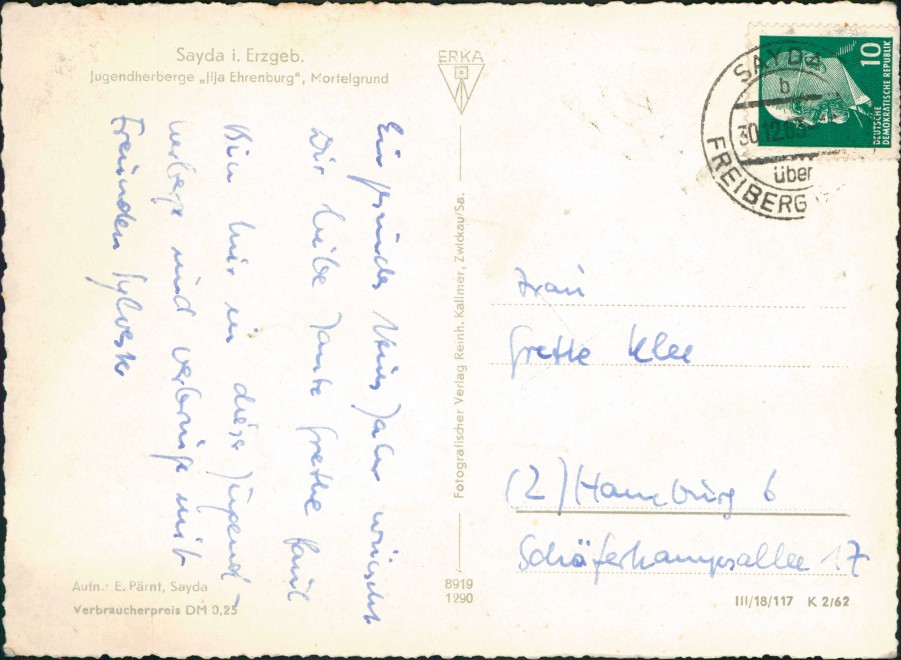 Sayda i. Erzgeb.
Jugendherberge „Ilja Ehrenburg“, Mortelgrund
Ein gesundes Neues Jahr wünscht
Dir liebe Tante Grethe
Bin hier in dieser Jugend-
herberge und verbringe mit
Freunden Sylvester
Aufn.: E. Pärnt, Sayda
Verbraucherpreis DM 0,25
ERKA
Fotografischer Verlag Reinh. Kallmer, Zwickau/Sa.
8919
1290
SAYDA
b
30.12.63
über
FREIBERG
10
DEUTSCHE
DEMOKRATISCHE REPUBLIK
Frau
Grethe Klee
(2) Hamburg 6
Schäferkampsallee 17
III/18/117 K 2/62